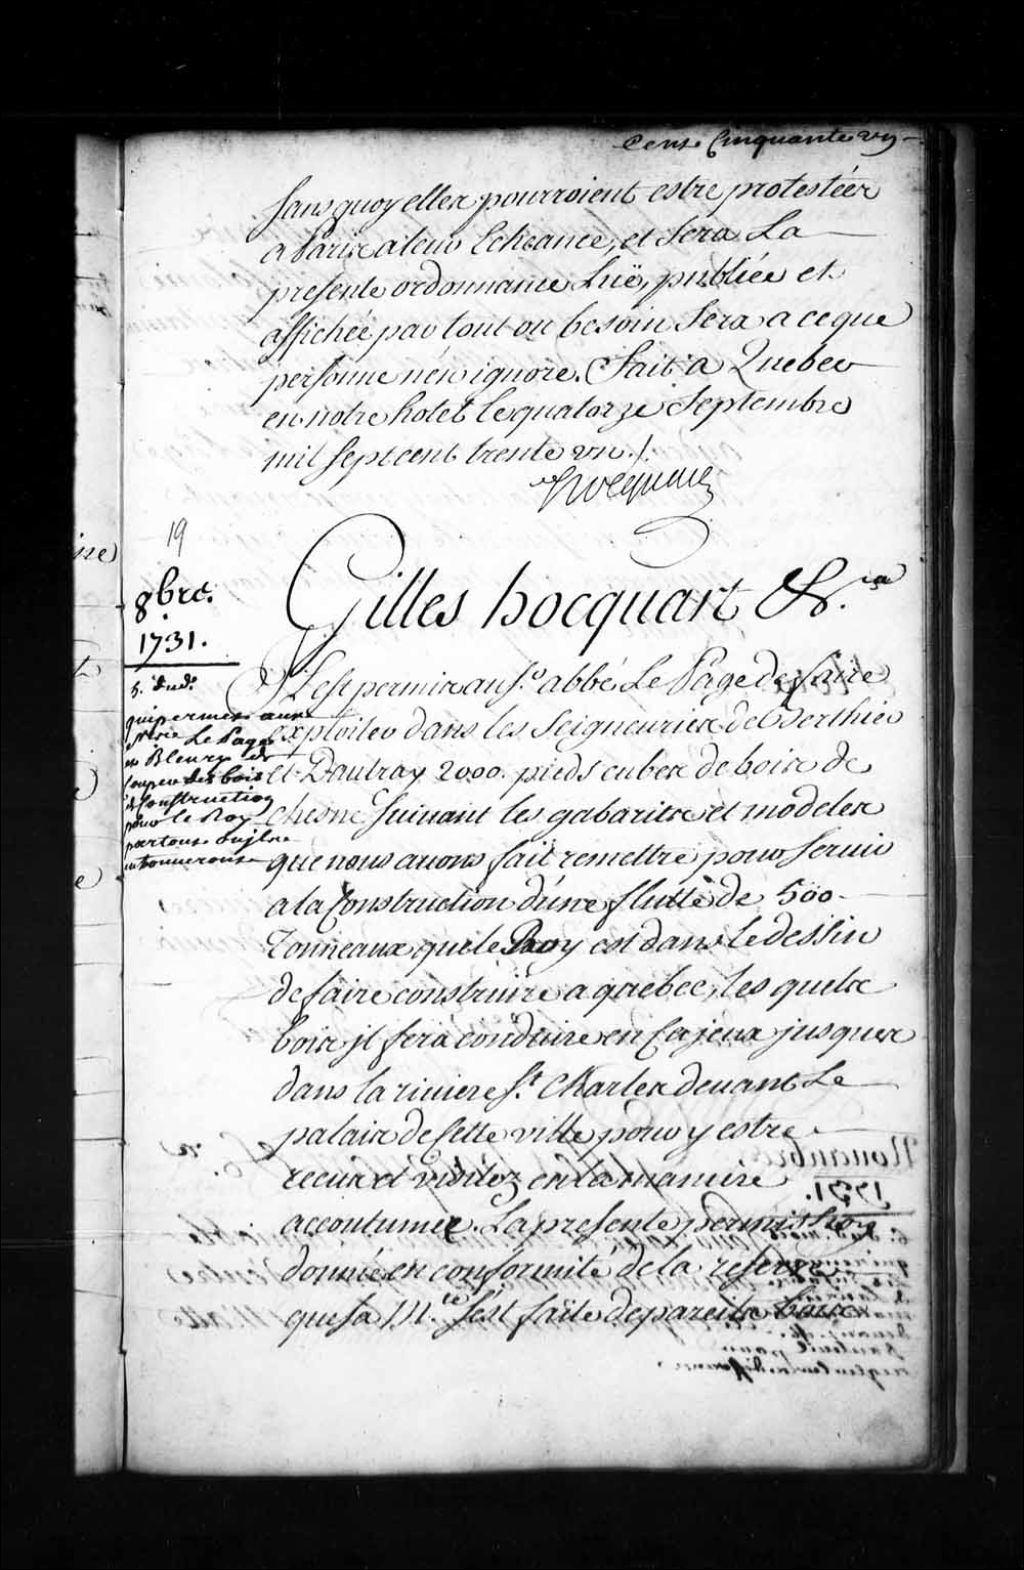 Cent Cinquante vn
sans quoy elles pourroient estre protestées
a Paris a leur Echeance, et sera La
presente ordonnance Luë, publiée et
affichée par tout ou besoin sera a ceque
personne n'en ignore. Fait a Quebec
en notre hotel le quatorze Septembre
mil sept cent trente vn ./.
Hocquart
19
8bre.
1731.
Gilles hocquart &c.ra
5. dud.
qui permet aux
Srs. Le Page
et Bleury de
Couper des bois
de Construction
pour le Roy
partout ou ils en
trouveront
Il est permis au Sr. abbé Le Page de faire
exploiter dans les Seigneuries de Berthier
et Dautray 2000. pieds cubes de bois de
chesne suivant les gabarits et modeles
que nous avons fait remettre pour servir
a la Construction d'une flutte de 500.
Tonneaux que le Roy est dans le dessin
de faire construire a quebec, les quels
bois il fera conduire en Cajeux jusques
dans la riviere St. Charles devant Le
palais de Cette ville pour y estre
receus et visitez en la maniere
accoutumée. La presente permission
donnée en conformité de la reserve
que sa M.té s'est faite de pareils bois